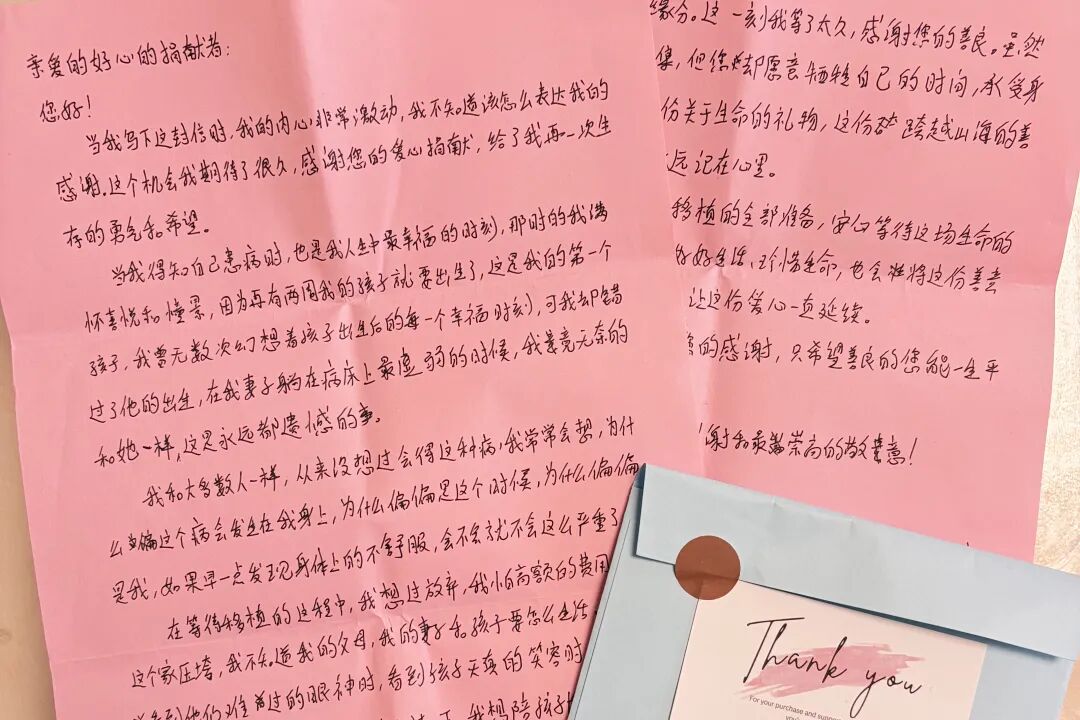 亲爱的好心的捐献者:
您好!
当我写下这封信时,我的内心非常激动,我不知道该怎么表达我的
感谢.这个机会我期待了很久,感谢您的爱心捐献,给了我再一次生
存的勇气和希望。
当我得知自己患病时,也是我人生中最幸福的时刻,那时的我满
怀喜悦和憧景,因为再有两周我的孩子就要出生了,这是我的第一个
孩子,我曾无数次幻想着孩子出生后的每一个幸福时刻,可我却错
过了他的出生,在我妻子躺在病床上最虚弱的时候,我竟无奈的
和她一样,这是永远都遗憾的事。
我和大多数人一样,从来没想过会得这种病,我常常会想,为什
么偏这个病会发生在我身上,为什么偏偏是这个时候,为什么偏偏
是我,如果早一点发现身体上的不舒服,会不会就不会这么严重了
在等待移植的这程中,我想过放弃,我怕高额的费用
这个家压垮,我不知道我的父母,我的妻子和孩子要怎么生活
看到他们难过的眼神时,看到孩子天真的笑容时
我想陪孩子
缘分。这一刻我等了太久,感谢您的善良。虽然
但您却愿意牺牲自己的时间,承受身
份关于生命的礼物,这份跨越山海的善
远记在心里。
移植的全部准备,安心等待这场生命的
好好生活、珍惜生命,也会将这份善意
让这份爱心一直延续。
的感谢,只希望善良的您能一生平
谢和最崇高的敬意!
Thank you
For your purchase and support